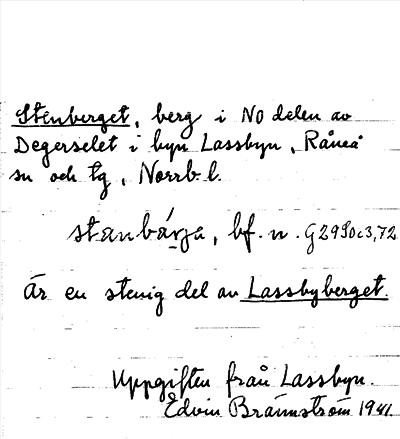 Stenberget, berg i NO delen av
Degerselet i byn Lassbyn, Råneå
sn och tg, Norrb. l.
bf. n.
Är en stenig del av Lassbyberget.
Uppgiften från Lassbyn.
Edvin Brännström 1941.